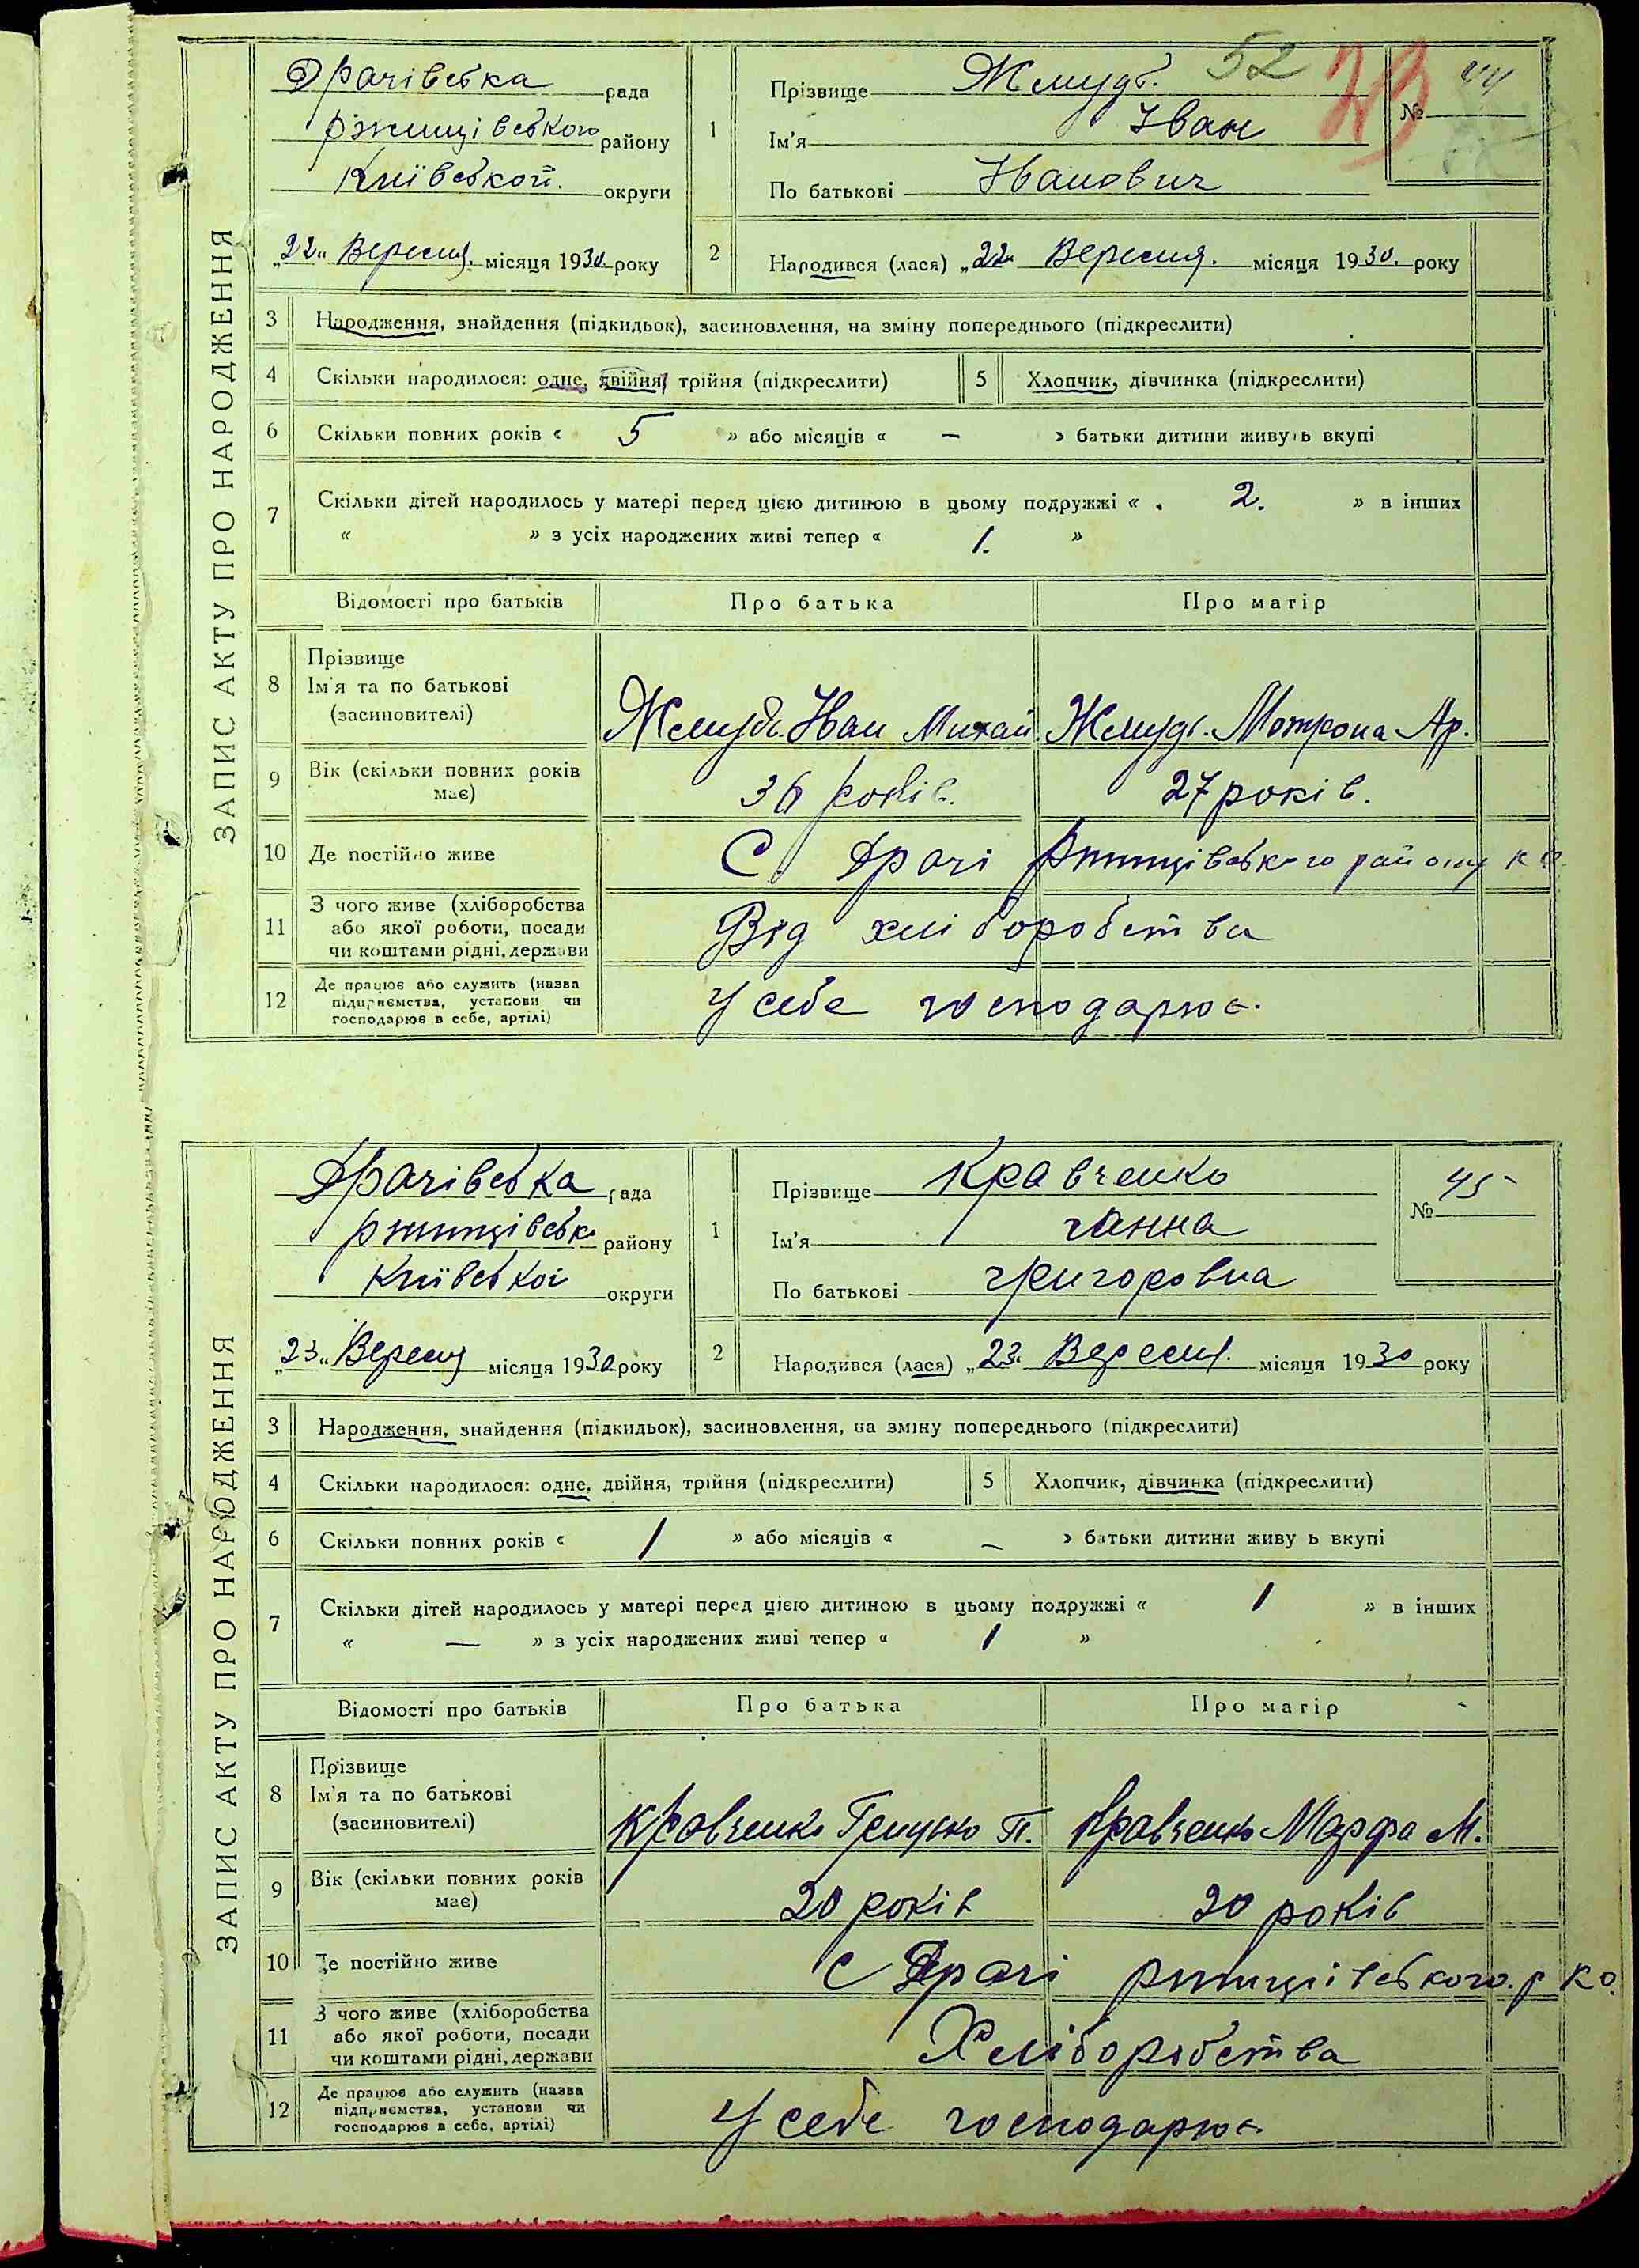 52 23
ЗАПИС АКТУ ПРО НАРОДЖЕННЯ
Драчівська рада
Ржищівського району
Київської. округи
„22“ Вересня. місяця 1930. року
1
Прізвище Жмудь.
Ім'я Іван
По батькові Іванович
№ 44
2
Народився (лася) „22“ Вересня. місяця 1930. року
3 Народження, знайдення (підкидьок), засиновлення, на зміну попереднього (підкреслити)
4 Скільки народилося: одне, двійня, трійня (підкреслити) 5 Хлопчик, дівчинка (підкреслити)
6 Скільки повних років « 5 » або місяців « – » батьки дитини живуть вкупі
7 Скільки дітей народилось у матері перед цією дитиною в цьому подружжі « 2. » в інших
« » з усіх народжених живі тепер « 1. »
Відомості про батьків Про батька Про матір
8 Прізвище
Ім'я та по батькові
(засиновителі)
Жмудь. Іван Михай. Жмудь. Мотрона Ар.
9 Вік (скільки повних років має) 36 років. 27 років.
10 Де постійно живе С. Драчі Ржищівського району к о.
11 З чого живе (хліборобства
або якої роботи, посади
чи коштами рідні, держави
Від хліборобства
12 Де працює або служить (назва
підприємства, установи чи
господарює в себе, артілі)
У себе господарює.
ЗАПИС АКТУ ПРО НАРОДЖЕННЯ
Драчівська рада
Ржищівськ. району
Київської округи
„23“ Вересня місяця 1930 року
1
Прізвище Кравченко
Ім'я Ганна
По батькові Григоровна
№ 45
2
Народився (лася) „23“ Вересня. місяця 1930 року
3 Народження, знайдення (підкидьок), засиновлення, на зміну попереднього (підкреслити)
4 Скільки народилося: одне, двійня, трійня (підкреслити) 5 Хлопчик, дівчинка (підкреслити)
6 Скільки повних років « 1 » або місяців « – » батьки дитини живу ь вкупі
7 Скільки дітей народилось у матері перед цією дитиною в цьому подружжі « 1 » в інших
« — » з усіх народжених живі тепер « 1 »
Відомості про батьків Про батька Про матір
8 Прізвище
Ім'я та по батькові
(засиновителі)
Кравченко Грицько П. Кравченко Марфа М.
9 Вік (скільки повних років має) 20 років 20 років
10 Де постійно живе с Драчі Ржищівського. р К о.
11 З чого живе (хліборобства
або якої роботи, посади
чи коштами рідні, держави
Хліборобства
12 Де працює або служить (назва
підприємства, установи чи
господарює в себе, артілі)
У себе господарює.